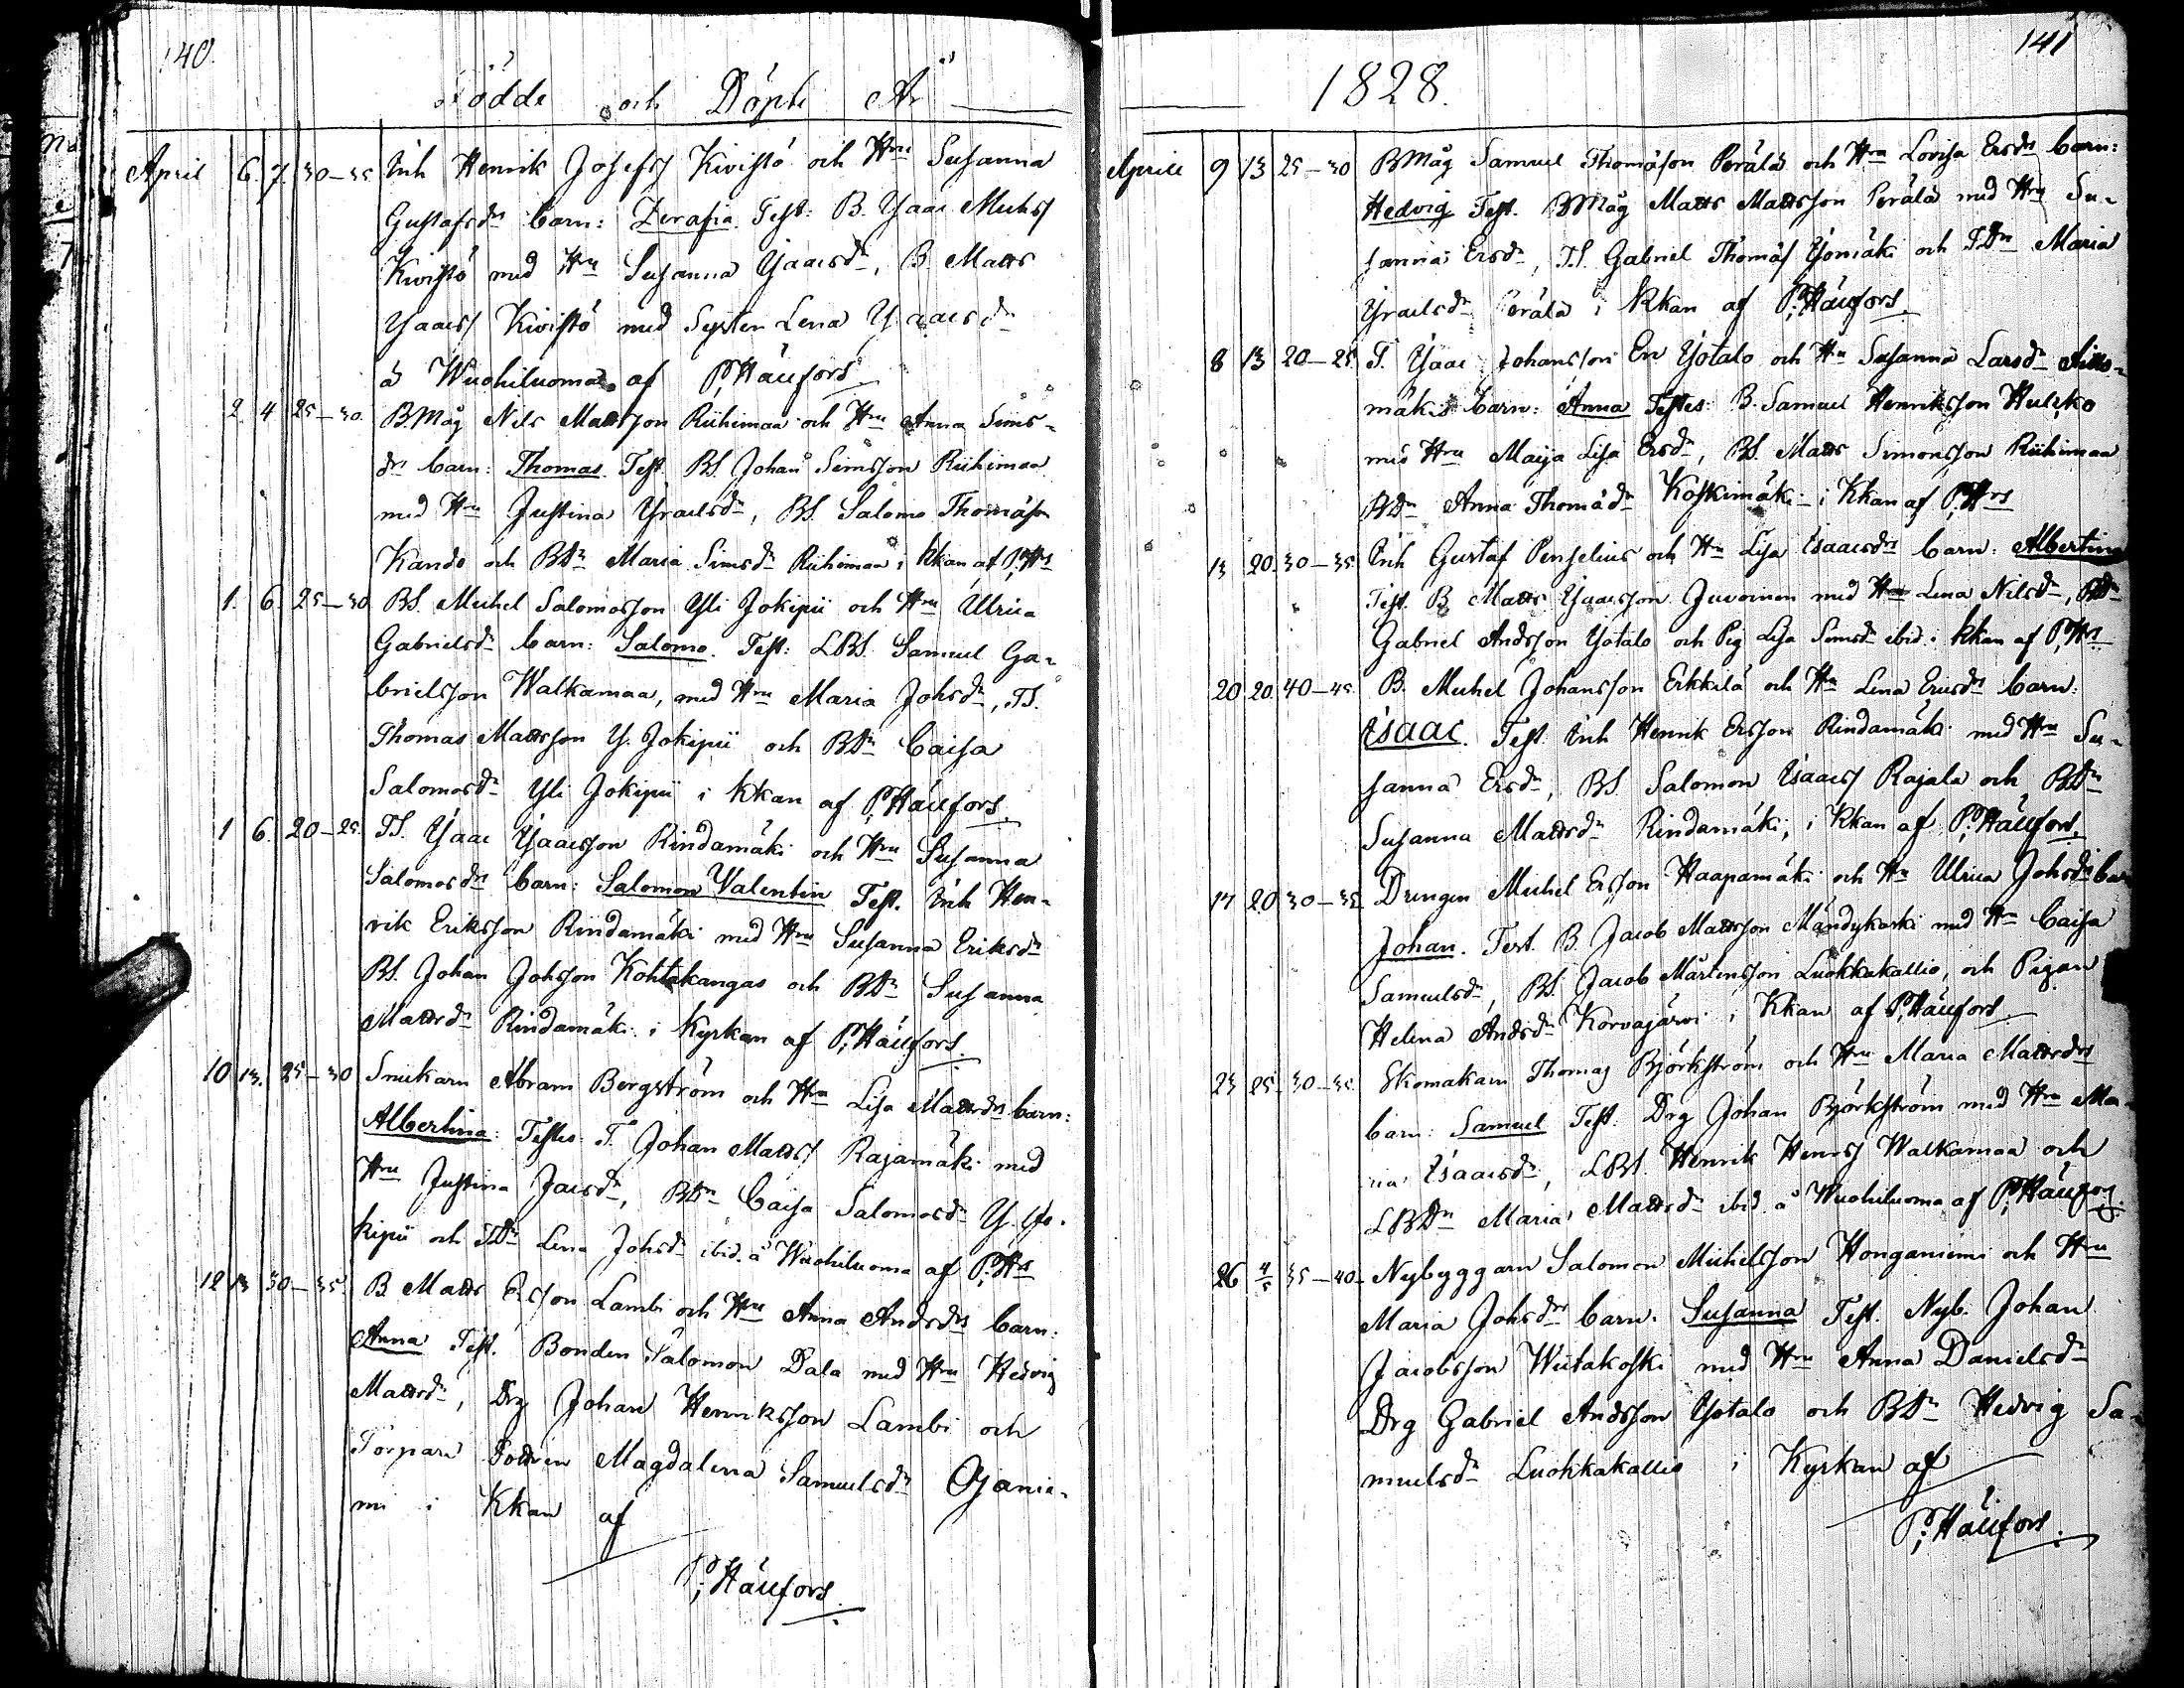 140.
Födde och Döpte År
April 6. 7. 30–35 Inh Henrik Josefss Kivistö och Hru Susanna
Gustafsdrs barn: Serafia Test: B. Isaac Michss
Kivistö med Hru Susanna Isaacsdr, B. Matts
Isaacss Kivistö med Systen Lena Isaacsdr
å Wuohiluoma af P. Häufors
2. 4 25–30. B.Måg Nils Mattsson Riihimaa och Hru Anna Sims-
drs barn: Thomas. Test. BS. Johan Simsson Riihimaa
med Hru Justina Israelsdr, BS. Salomo Thomasson
Kando och BDr Maria Simsdr Riihimaa i kkan af P. Hrs
1. 6 25–30 BS. Michel Salomosson Yli Jokipii och Hru Ulrica
Gabrielsdrs barn: Salomo. Test: LBS. Samuel Ga-
brielsson Walkamaa, med Hru Maria Johsdr, TS.
Thomas Mattsson Y. Jokipii och BDr Caisa
Salomosdr Yli Jokipii i kkan af P. Häufors.
1 6. 20–25. TS. Isaac Isaacsson Rindamäki och Hru Susanna
Salomosdrs barn: Salomon Valentin Test. Inh Hen-
rik Eriksson Rindamäki med Hru Susanna Eriksdr
BS. Johan Johsson Kohtakangas och BDr Susanna
Mattsdr Rindamäki i Kyrkan af P. Häufors.
10 13. 25–30 Smikarn Abram Bergström och Hru Lisa Mattsdrs barn:
Albertina: Testes: T. Johan Mattss Rajamäki med
Hru Justina Jacsdr, BDr Caisa Salomosdr Y. Jo-
kipii och TDr Lena Johsdr ibid. å Wuohiluoma af P. Hrs
12 13 30–35. B Matts Ersson Lambi och Hru Anna Andsdrs barn:
Anna Test. Bonden Salomon Dala med Hru Hedvig
Mattsdr, Drg Johan Henriksson Lambi och
Torpare Dottren Magdalena Samuelsdr Ojanie-
mi i Kkan af
P. Häufors.
141
1828.
April 9 13 25–30 BMåg Samuel Thomasson Perälä och Hru Lovisa Ersdrs barn:
Hedvig Test. BMåg Matts Mattsson Perälä med Hru Su-
sanna Ersdr, TS. Gabriel Thomass och TDr Maria
Israelsdr Perälä i Kkan af P. Häufors.
8 13 20–25 T. Isaac Johansson En Yötalo och Hru Susanna Larsdr
mäkis barn: Anna Testes: B. Samuel Henriksson Hulcko
med Hru Maija Lisa Ersdr, BS. Matts Simonsson Riihimaa
BDr Anna Thomadr Koskimäki i Kkan af P. Hrs
13 20 30–35 Inh Gustaf Penselius och Hru Lisa Isaacsdrs barn: Albertina
Test. B. Matts Isaacsson Juvoinen med Hru Lena Nilsdr,
Gabriel Andsson Yötalo och Pig Lisa Simsdr ibid. i kkan af P. Hrs
20 20 40–45 B. Michel Johansson Erkkilä och Hru Lena Ericsdrs barn:
Isaac. Test. Inh Henrik Ersson Rindamäki med Hru Su-
sanna Ersdr, BS Salomon Isaacss Rajala och BDr
Susanna Mattsdr Rindamäki, i Kkan af P. Häufors.
17 20 30–35 Drengen Michel Ersson Haapamäki och Hru Ulrica Johsdrs bar
Johan. Test. B. Jacob Mattsson Mändykoski med Hru Caisa
Samuelsdr, BS. Jacob Mårtensson Luokkakallio, och Pigan
Helena Andsdr Korvajärvi i Kkan af P. Häufors.
23 25 30–35 Skomakarn Thomas Björkström och Hru Maria Mattsdrs
barn: Samuel Test. Drg Johan Björkström med Hru Ma-
ria Isaacsdr, LBS. Henrik Henrss Walkamaa och
LBDr Maria Mattsdr ibid. å Wuohiluoma af P. Häufors.
26 4/5 35–40 Nybyggarn Salomon Michelsson Honganiemi och Hru
Maria Johsdrs barn. Susanna Test. Nyb. Johan
Jacobsson Wiitakoski med Hru Anna Danielsdr
Drg Gabriel Andsson Yötalo och BDr Hedvig Sa-
muelsdr Luokkakallio i Kyrkan af
P. Häufors.